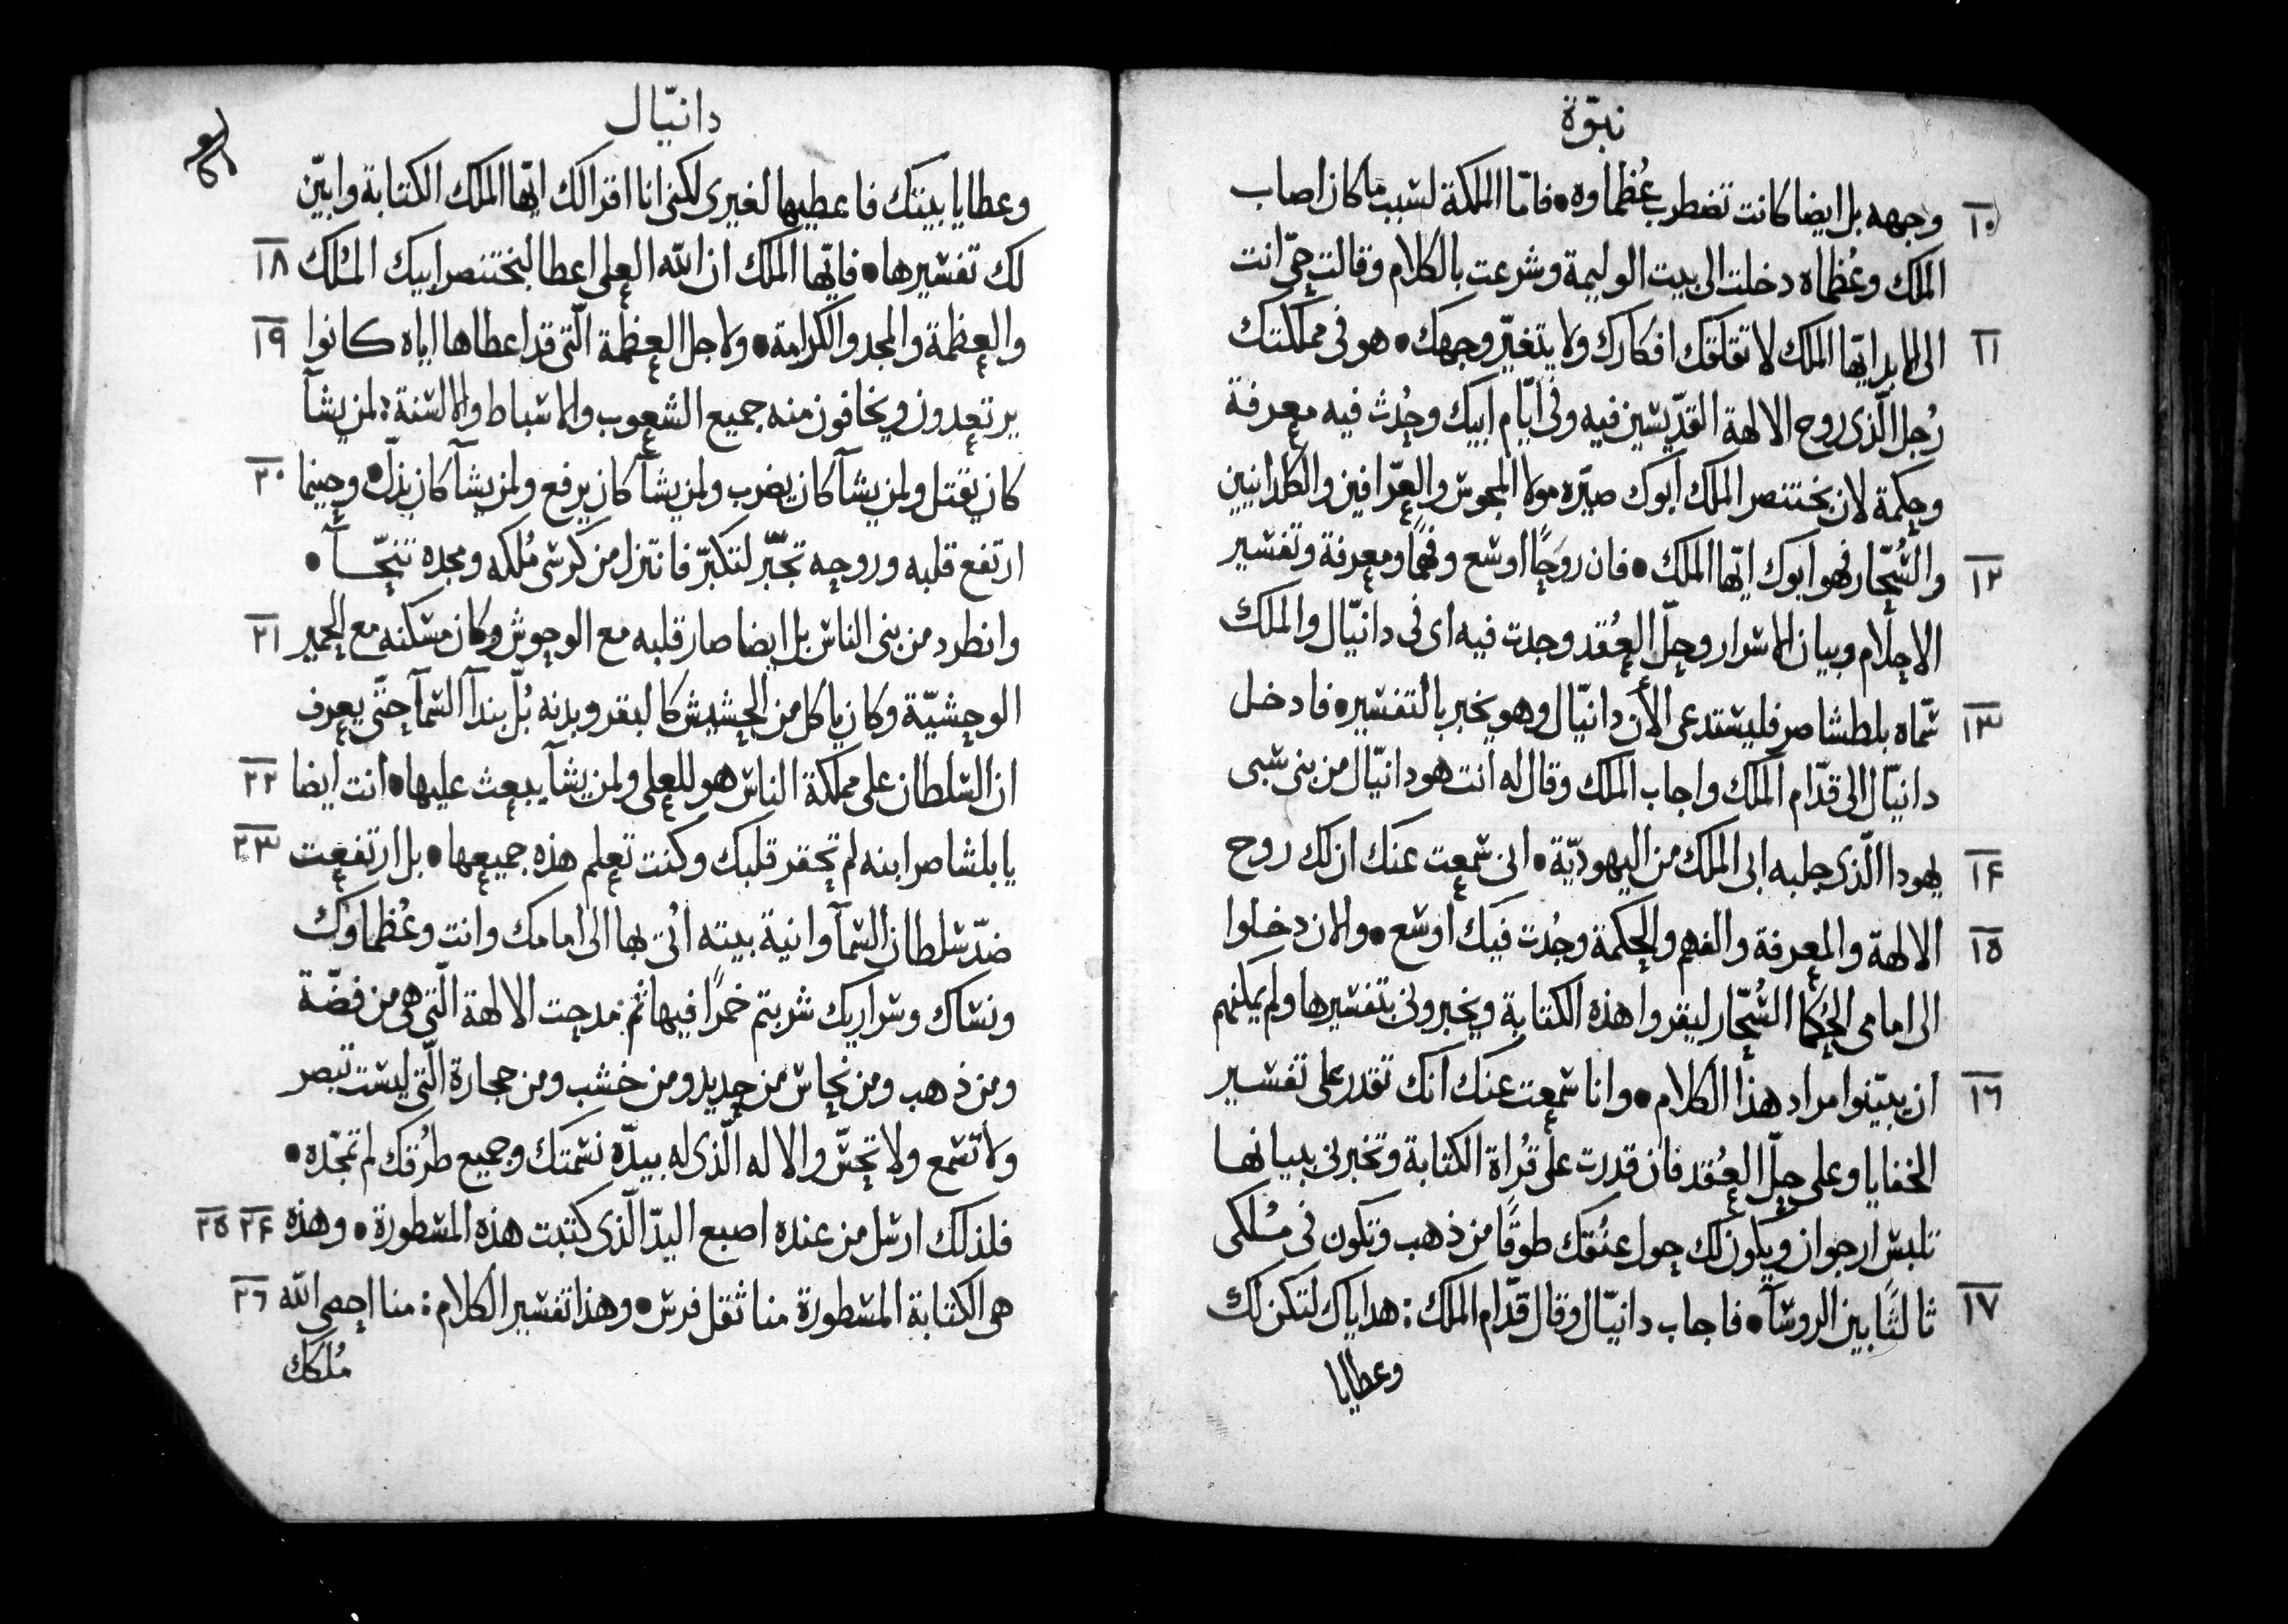 نبوّة
١٠ وجهه بل ايضا كانت تضطرب عُظماوه • فامّا الملكة لسبب ما كان اصاب
الملك وعُظماه دخلت الى بيت الوليمة وشرعت بالكلام وقالت حيّ انت
١١ الى الابد ايّها الملك لا تقلقك افكارك ولا يتغيّر وجهك • هو فى مملكتك
رُجل الّذى روح الالهة القدّيسين فيه وفى ايّام ابيك وجُدث فيه معرفة
وحكمة لان بختنصر الملك ابوك صيّره مولا المجوس والعرّافين والكلدانيين
١٢ والسُّحّار فهو ابوك ايّها الملك • فان روحًا اوسع وفهمًا ومعرفة وتفسير
الاحلام وبيان الاسرار وحلّ العُقد وجدت فيه اى فى دانيّال والملك
١٣ سمّاه بلطشاصر فليستدعى الأن دانيّال وهو يخبر بالتفسير • فادخل
دانيّال الى قدّام الملك واجاب الملك وقال له أنت هو دانيّال من بنى سبى
١٤ يهودا الّذى جلبه ابى الملك من اليهوديّة • انى سمعت عنك ان لك روح
١٥ الالهة والمعرفة والفهم والحكمة وجُدت فيك اوسع • والان دخلوا
الى امامى الحُكما السُّحّار ليقروا هذه الكتابة ويخبرونى بتفسيرها ولم يمكنهم
١٦ ان يبيّنوا مراد هذا الكلام • وانا سمعت عنك انك تقدر على تفسير
الخفايا وعلى حلّ العُقد فان قدرت على قُراة الكتابة وتخبرنى ببيانها
تلبس ارجوان ويكون لك حول عنُقك طوقًا من ذهب وتكون فى مُلكى
١٧ ثالثًا بين الروسآ • فاجاب دانيّال وقال قدّام الملك : هداياك لتكن لك
وعطايا
دانيّال
وعطايا بيتك فاعطيها لغيرى لكنى انا اقرا لك ايّها الملك الكتابة وابيّن
لك تفسيرها • فايّها الملك ان اللّه العلى اعطا لبختنصر ابيك المُلك ١٨
والعظمة والمجد والكرامة • ولاجل العظمة الّتى قد اعطاها اياه كانوا ١٩
يرتعدون ويخافون منه جميع الشعوب والاسباط والالسنة : لمن يشآ
كان يقتل ولمن يشآ كان يضرب ولمن يشآ كان يرفع ولمن يشآ كان يذلّ • وحينما ٢٠
ارتفع قلبه وروحه تجبّر لتكبّر فانتزل من كرسى مُلكه ومجده تنحّـآ •
وانطرد من بنى الناس بل ايضا صار قلبه مع الوحوش وكان مسكنه مع الحمير ٢١
الوحشيّة وكان ياكل من الحشيش كالبقر وبدنه بُلّ بندآ السّمآ حتّى يعرف
ان السّلطان على مملكة الناس هو للعلى ولمن يشآ يبعث عليها • انت ايضا ٢٢
يا بلشاصر ابنه لم تحقر قلبك وكنت تعلم هذه جميعها • بل ارتفعت ٢٣
ضدّ سلطان السّمآ وانية بيته اُتى بها الى امامك وانت وعُظماوك
ونساك وسراريك شربتم خمرًا فيها ثم مدحت الالهة الّتى هى من فضّة
ومن ذهب ومن نحاس من حديد ومن خشب ومن حجارة الّتى ليست تبصر
ولا تسمع ولا تحسّ والاله الّذى له بيدّه نسمتك وجميع طرُقك لم تمجّده •
فلذلك ارسل من عنده اصبع اليدّ الّذى كتبت هذه المسطورة • وهذه ٢٤ ٢٥
هى الكتابة المسطورة منا ثقل فرس • وهذا تفسير الكلام : منا احصى اللّه ٢٦
مُلكك